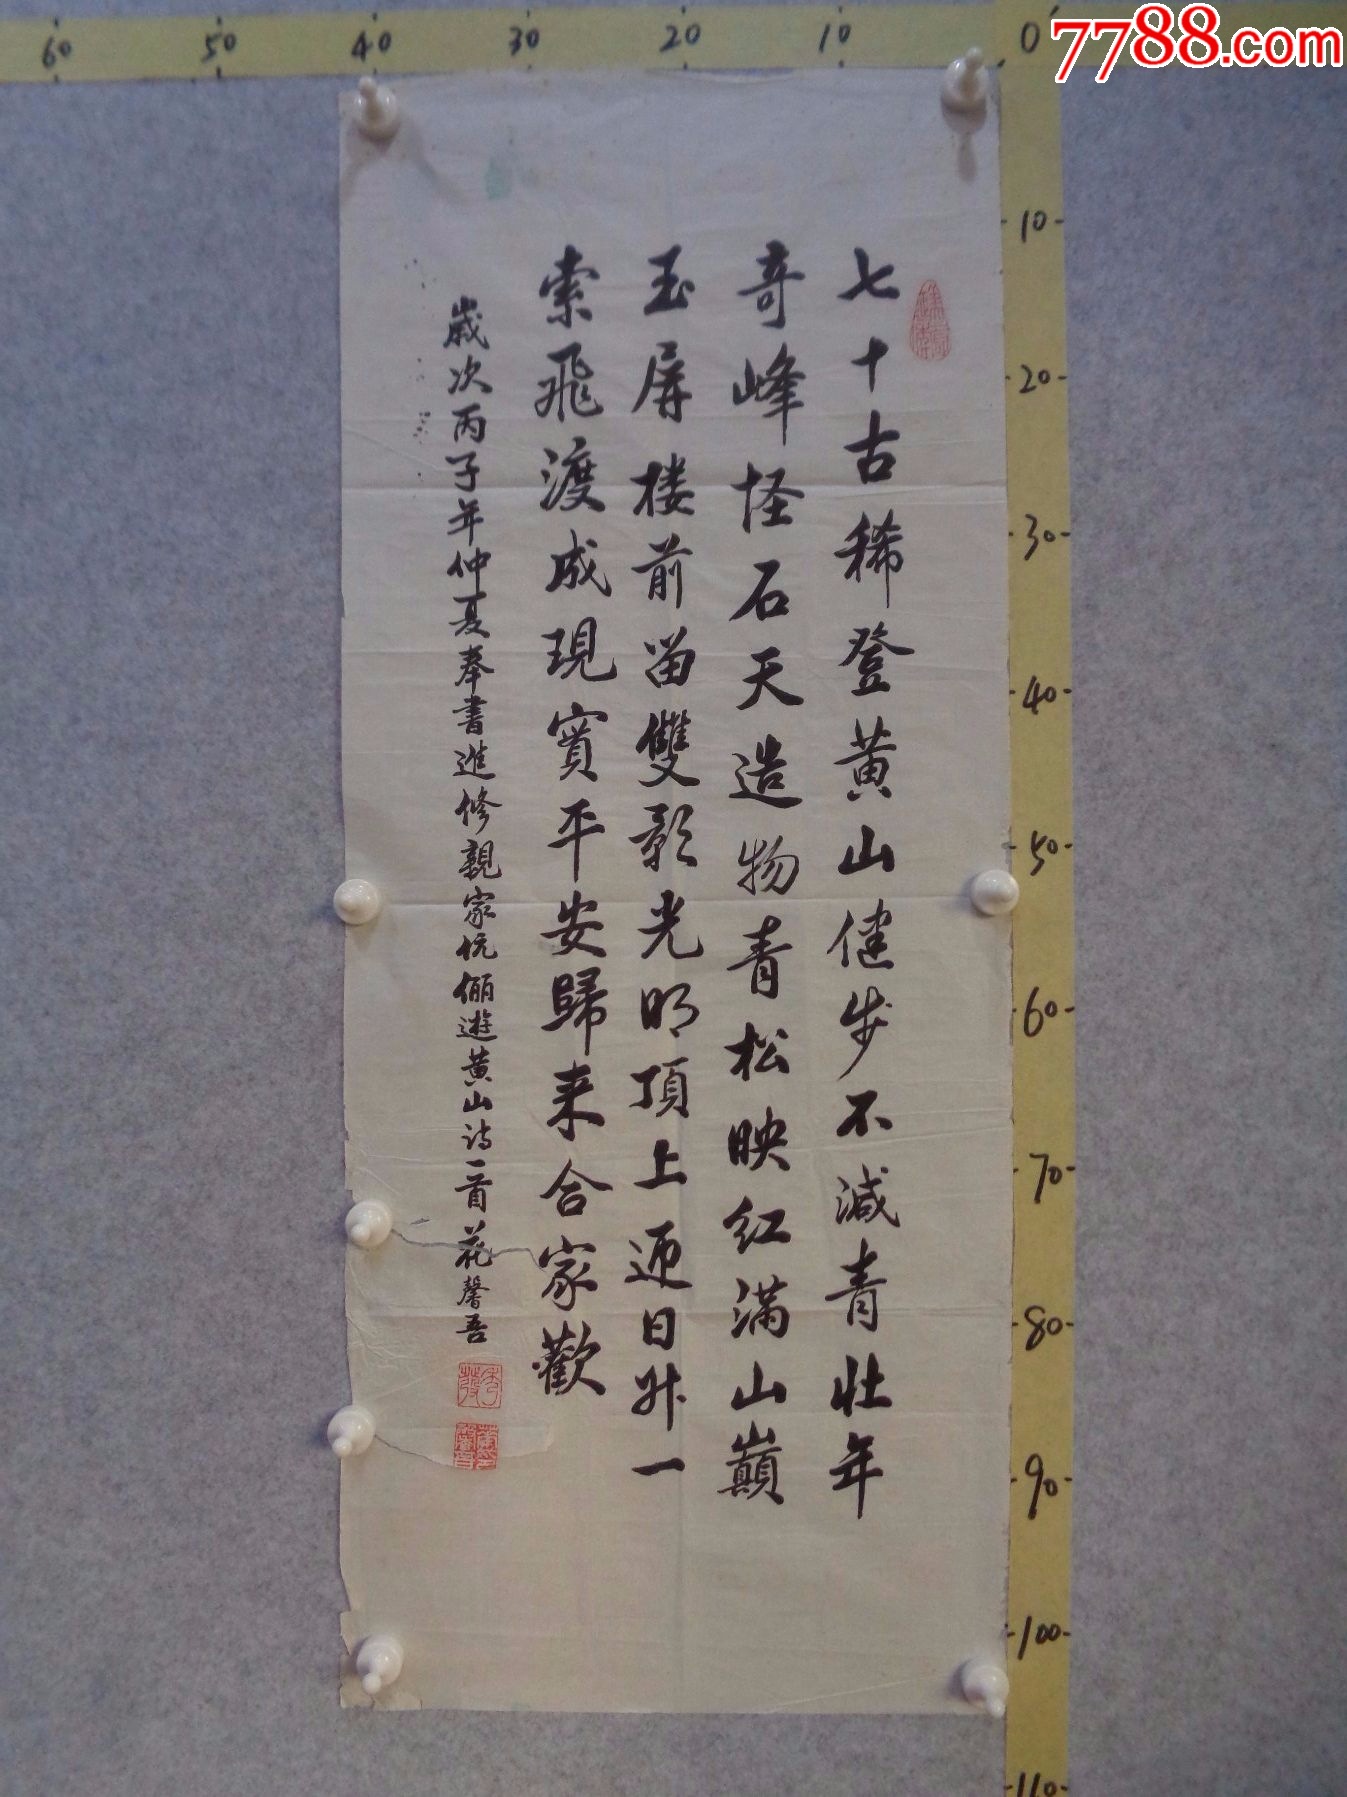 7788.com
60 50 40 30 20 10 0
七十古稀登黄山健步不减青壮年
奇峰怪石天造物青松映红满山巅
玉屏楼前留雙影光明顶上迎日升一
索飛渡成現實平安歸来合家歡
歲次丙子年仲夏奉書進修親家伉儷遊黄山诗一首花馨吾
10
20
30
40
50
60
70
80
90
100
110